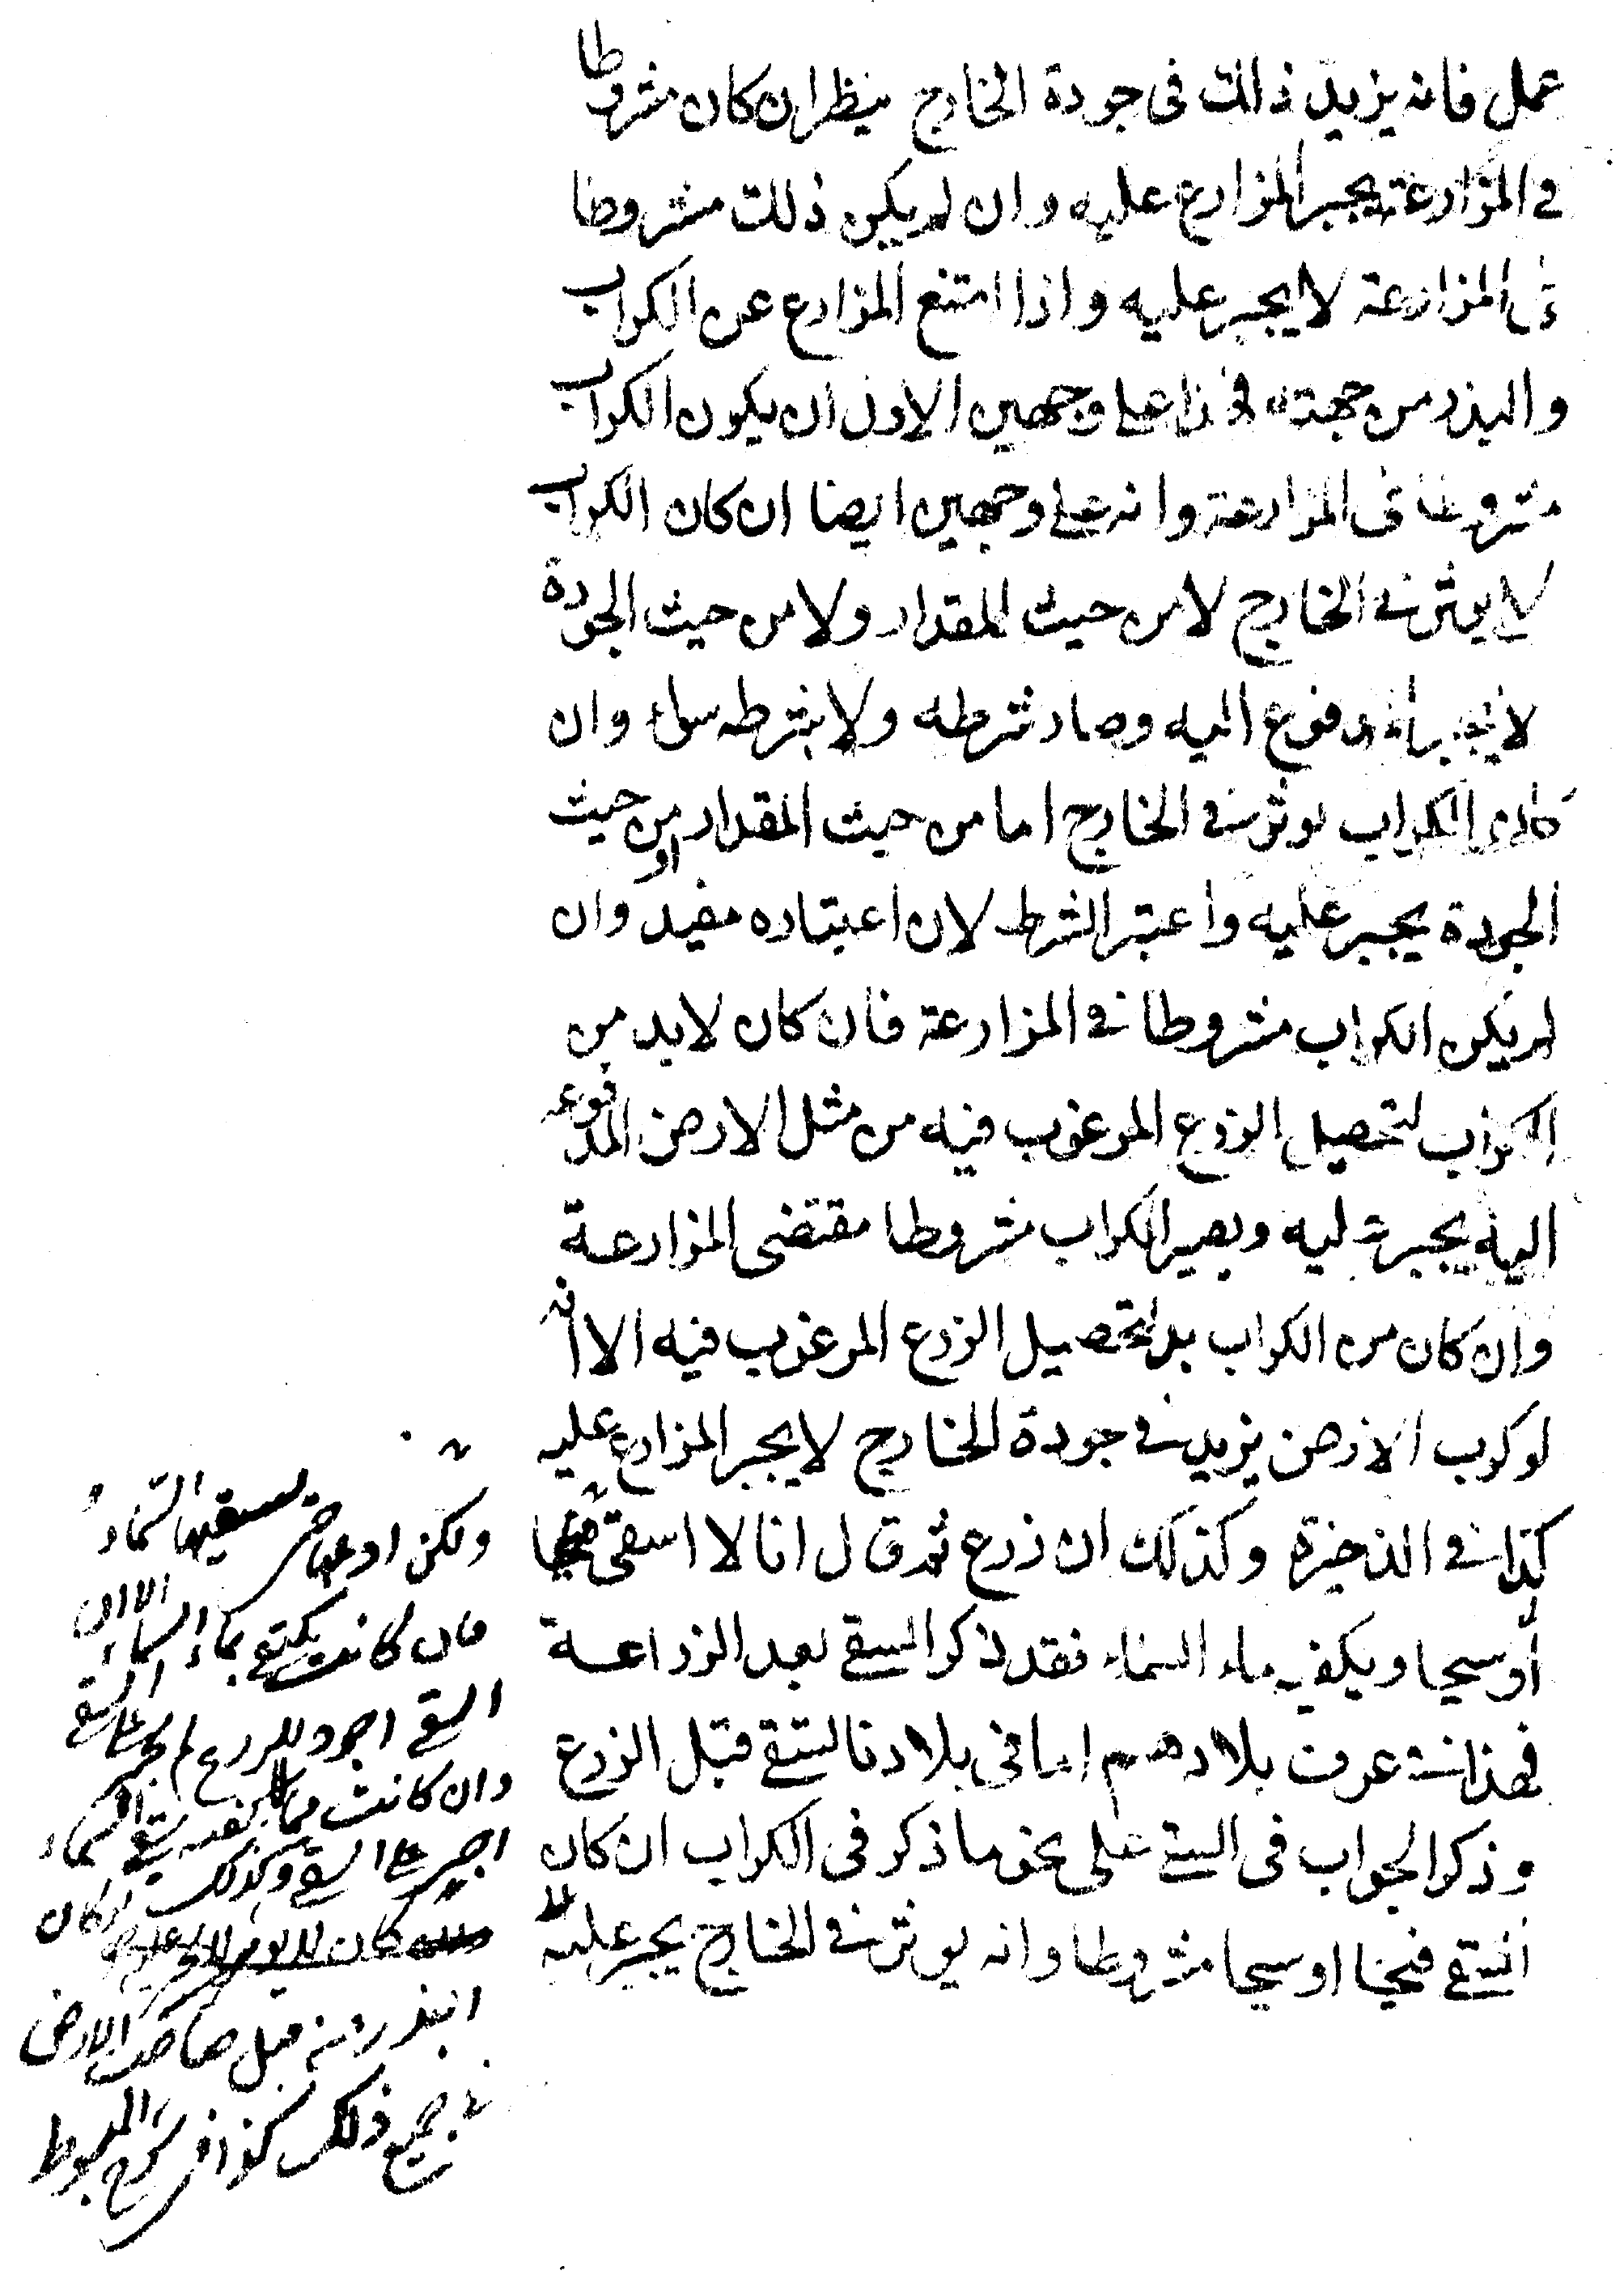 عمل فانه يزيد ذلك في جودة الخارج ينظر ان كان مشروطا
في المزارعة يجبر المزارع عليه وان لم يكن ذلك مشروطا
في المزارعة لا يجبر عليه واذا امتنع المزارع عن الكراب
والبذر من جهته فهذا على وجهين الاول ان يكون الكراب
مشروطا في المزارعة وانه على وجهين ايضا ان كان الكراب
لا يؤثر في الخارج لا من حيث المقدار ولا من حيث الجودة
لا يجبر المدفوع اليه وصار شرطه ولا بشرطه سواء وان
كان الكراب يوثر في الخارج اما من حيث المقدار او من حيث
الجودة يجبر عليه واعتبر الشرط لان اعتباره مفيد وان
لم يكن الكراب مشروطا في المزارعة فان كان لا بد من
الكراب لتحصيل الزرع المرغوب فيه من مثل الارض المدفوعه
اليه يجبر عليه ويصير الكراب مشروطا مقتضى المزارعة
وان كان من الكراب بد لتحصيل الزرع المرغوب فيه الا انه
لو كرب الارض يزيد في جودة الخارج لا يجبر المزارع عليه
كذا في الذخيرة وكذلك ان زرع ثم قال انا لا اسقى فتحا
أو سيحا ويكفيه ماء السماء فقد ذكر السقي بعد الزراعة
فهذا في عرف بلادهم اما في بلادنا لتسقي قبل الزرع
وذكر الجواب في السقي على نحو ما ذكر في الكراب ان كان
السقي فتحا او سيحا مشروطا وانه يوثر في الخارج يجبر عليه
ولكن ادعها حتى تسقيها السماء
فان كانت يكتفي بماء السماء الا ان
السقي اجود للزرع لم يجبر على السقي
وان كانت مما لا يكفيه سقي السماء
اجبر على السقي وكذلك ان كان
البذر من قبل صاحب الارض
في جميع ذلك كذا في شرح المبسوط